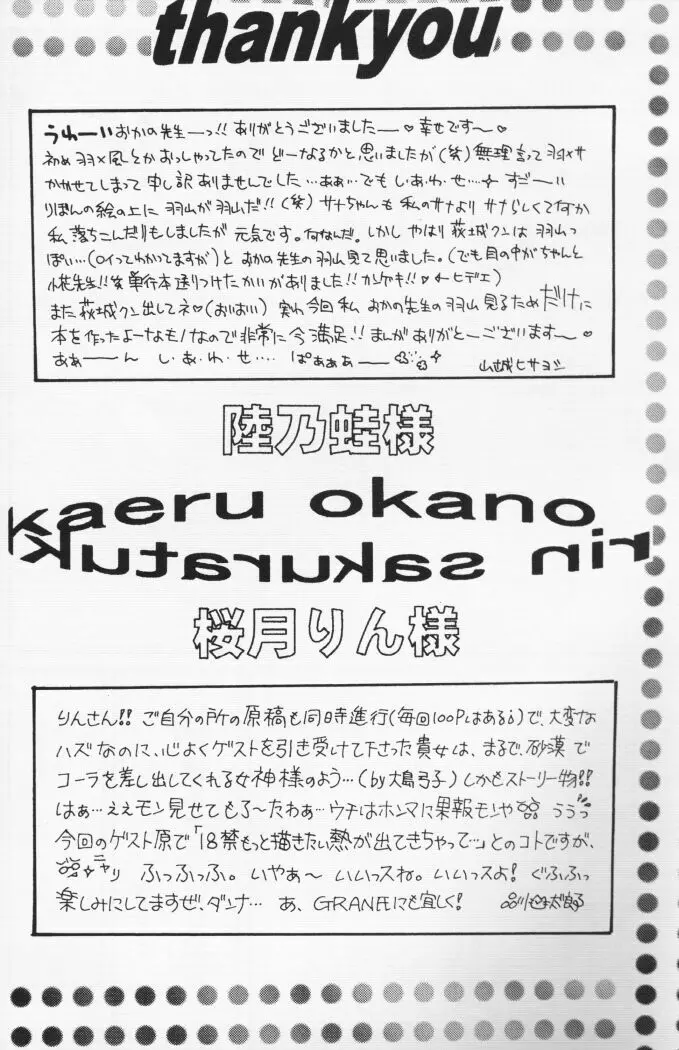 thankyou
うわーいおかの先生ーっ!! ありがとうございましたー♡ 幸せです〜♡
初め羽×風とかおっしゃってたので どーなるかと思いましたが(笑)無理言って羽×サ
かかせてしまって申し訳ありませんでした…ああ…でも し・あ・わ・せ… すごーい
りぼんの絵の上に 羽山が羽山だ!!(笑) サナちゃんも私のサナよりサナらしくてなか
私落ちこんだりもしましたが 元気です。何なんだ。しかし やはり 萩城クンは 羽山っ
ぽい…(ロイってわかってますが)と おかの先生の羽山見て思いました。(でも目の中がちゃんと
小花先生!! 単行本送りつけたかいがありました!! カンゲキ!!♡←ヒデエ)
また萩城クン出してネ♡(おいおい) 実わ今回私 おかの先生の羽山見るためだけに
本を作ったよーなもんなので非常に今満足!! まんがありがとーございます〜♡
あぁーーん し・あ・わ・せ…… ぱぁぁぁー 山城ヒサヨシ
陸乃蛙様
kaeru okano
rin sakuratuki
桜月りん様
りんさん!! ご自分の所の原稿も同時進行(毎回100Pはある)で、大変な
ハズなのに、心よくゲストを引き受けて下さった貴女は、まるで、砂漠で
コーラを差し出してくれる女神様のよう…(by大島弓子)しかもストーリー物!!
はぁ…ええモン見せてもろ〜たわぁ…ウチはホンマに果報モンや ううっ
今回のゲスト原で「18禁もっと描きたい熱が出てきちゃって…」とのコトですが、
ニヤリ ふっふっふ。いやあ〜 いいっスね。いいっスよ! ぐふふっ
楽しみにしてますぜ、ダンナ… あ、GRANEにも宜しく!